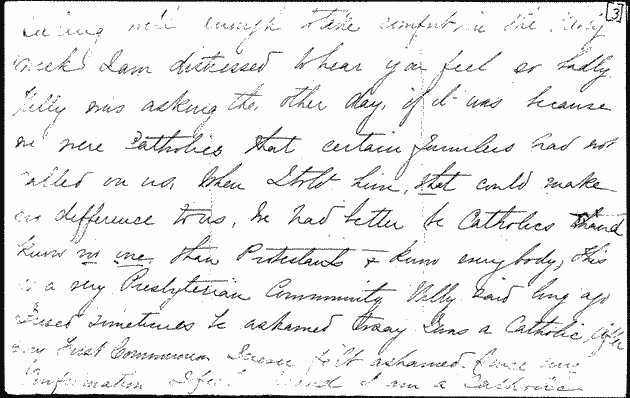 [3]
being well enough to take comfort in the Holy
week. I am distressed to hear you feel so badly
Willy was asking the other day, if it was because
we were Catholics that certain families had not
called on us, when I told him, that could make
no difference to us, We had better be Catholics and
know no one than Protestants & know everybody, this
is a very Presbyterian Community Willy said long ago
I used sometimes be ashamed to say I was a Catholic, After
my First Communion I never felt ashamed. Since my
Confirmation I feel proud I am a Catholic